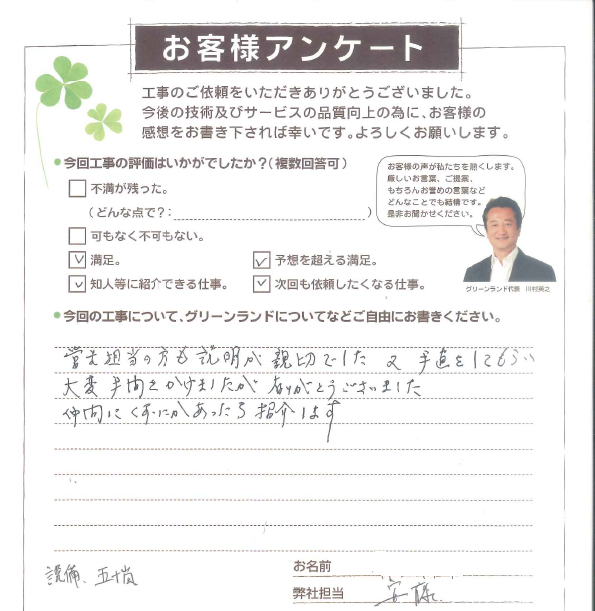 お客様アンケート
工事のご依頼をいただきありがとうございました。
今後の技術及びサービスの品質向上の為に、お客様の
感想をお書き下されば幸いです。よろしくお願いします。
今回工事の評価はいかがでしたか?(複数回答可)
不満が残った。
(どんな点で?: )
可もなく不可もない。
満足。
予想を超える満足。
知人等に紹介できる仕事。
次回も依頼したくなる仕事。
お客様の声が私たちを熱くします。
厳しいお言葉、ご提案、
もちろんお誉めの言葉など
どんなことでも結構です。
是非お聞かせください。
グリーンランド代表 川村英之
今回の工事について、グリーンランドについてなどご自由にお書きください。
営業担当の方も説明が親切でした 又 手直をしてもらい
大変手間をかけましたが ありがとうございました
仲間に あったら紹介します
お名前
弊社担当 安藤
設備、五十嵐